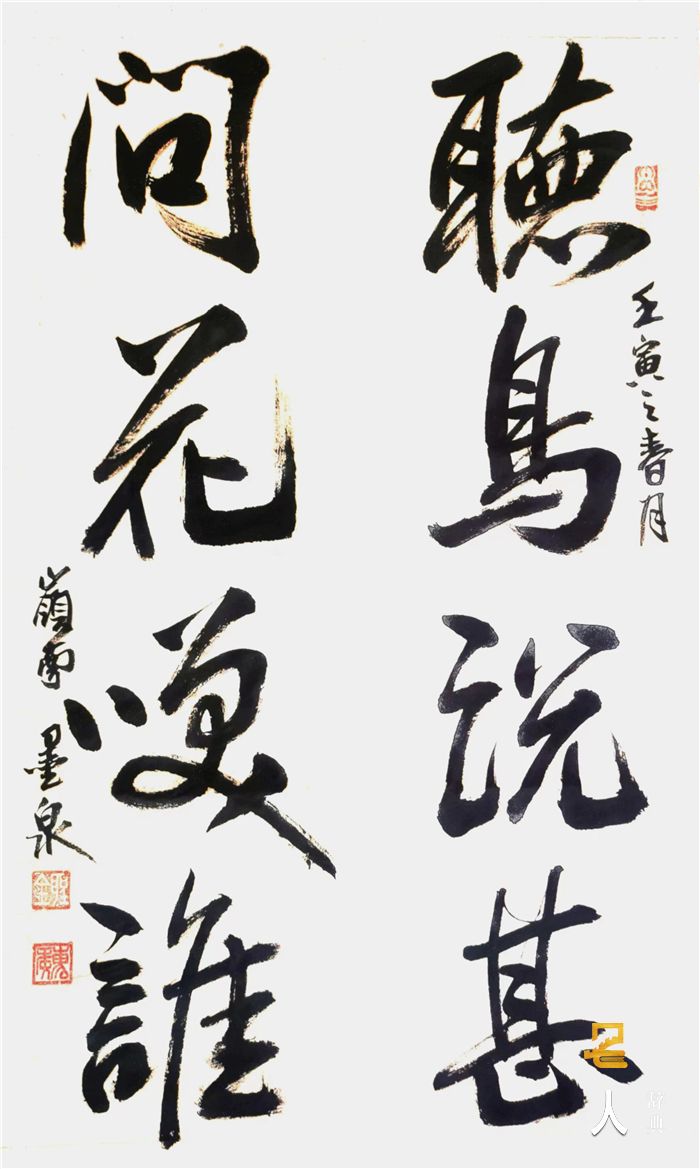 壬寅之春月
聽鳥說甚
問花笑誰
嶺南 墨泉
名人
辞典